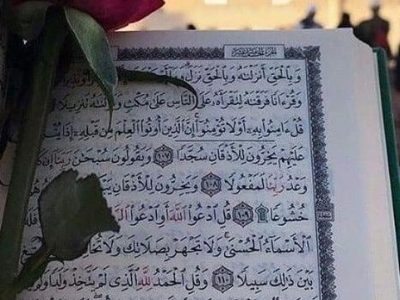 الجزء الخامس عشر
وَبِالْحَقِّ أَنزَلْنَٰهُ وَبِالْحَقِّ نَزَلَ
وَقُرْءَانًا فَرَقْنَٰهُ لِتَقْرَأَهُۥ عَلَى النَّاسِ عَلَىٰ مُكْثٍ وَنَزَّلْنَٰهُ تَنزِيلًا
قُلْ ءَامِنُوا۟ بِهِۦٓ أَوْ لَا تُؤْمِنُوٓا۟ إِنَّ الَّذِينَ أُوتُوا۟ الْعِلْمَ مِن قَبْلِهِۦٓ إِذَا
عَلَيْهِمْ يَخِرُّونَ لِلْأَذْقَانِ سُجَّدًا ١٠٧ وَيَقُولُونَ سُبْحَٰنَ رَبِّنَآ إِن
وَعْدُ رَبِّنَا لَمَفْعُولًا ١٠٨ وَيَخِرُّونَ لِلْأَذْقَانِ
خُشُوعًا ١٠٩ قُلِ ادْعُوا۟ اللَّهَ أَوِ ادْعُوا۟
الْأَسْمَآءُ الْحُسْنَىٰ وَلَا تَجْهَرْ بِصَلَاتِكَ وَلَا
بَيْنَ ذَٰلِكَ سَبِيلًا ١١٠ وَقُلِ الْحَمْدُ لِلَّهِ الَّذِى لَمْ يَتَّخِذْ وَلَدًا